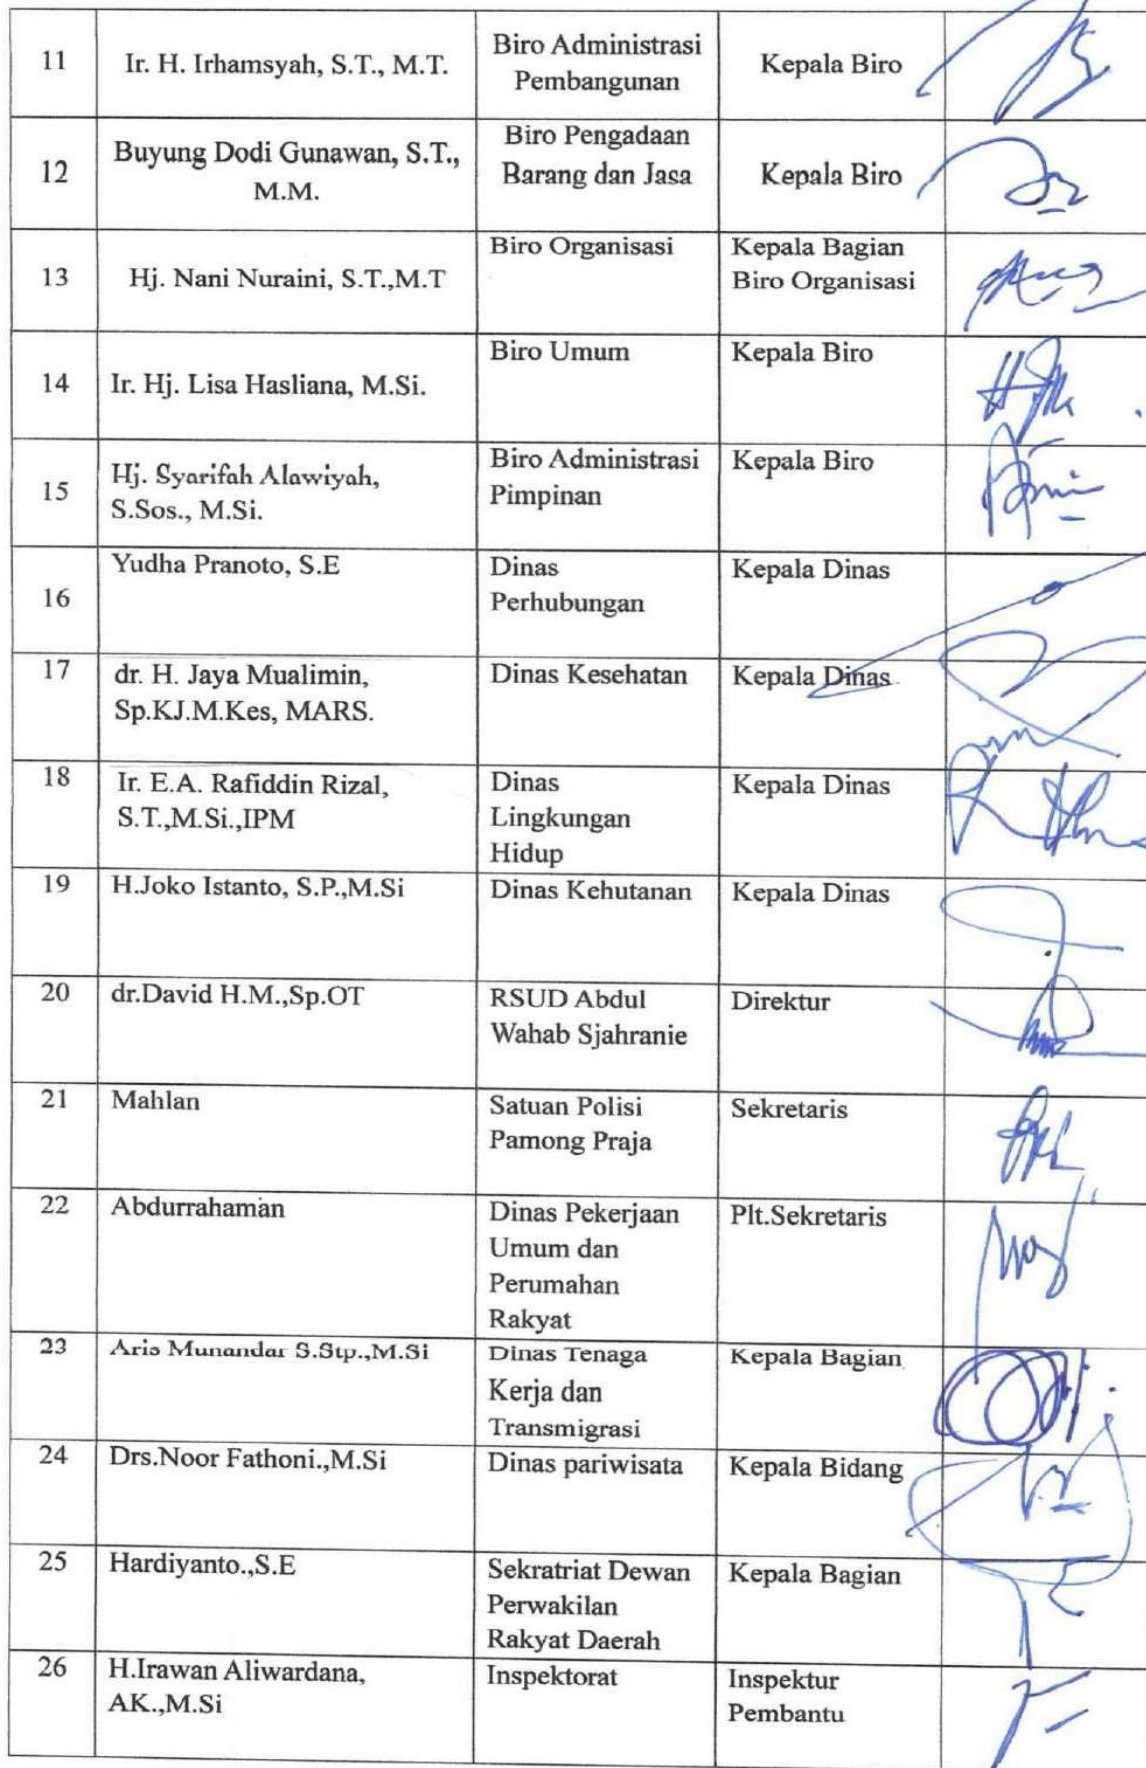 11
Ir. H. Irhamsyah, S.T., M.T.
Biro Administrasi
Pembangunan
Kepala Biro
12
Buyung Dodi Gunawan, S.T.,
M.M.
Biro Pengadaan
Barang dan Jasa
Kepala Biro
13
Hj. Nani Nuraini, S.T.,M.T
Biro Organisasi
Kepala Bagian
Biro Organisasi
14
Ir. Hj. Lisa Hasliana, M.Si.
Biro Umum
Kepala Biro
15
Hj. Syarifah Alawiyah,
S.Sos., M.Si.
Biro Administrasi
Pimpinan
Kepala Biro
16
Yudha Pranoto, S.E
Dinas
Perhubungan
Kepala Dinas
17
dr. H. Jaya Mualimin,
Sp.KJ.M.Kes, MARS.
Dinas Kesehatan
Kepala Dinas
18
Ir. E.A. Rafiddin Rizal,
S.T.,M.Si.,IPM
Dinas
Lingkungan
Hidup
Kepala Dinas
19
H.Joko Istanto, S.P.,M.Si
Dinas Kehutanan
Kepala Dinas
20
dr.David H.M.,Sp.OT
RSUD Abdul
Wahab Sjahranie
Direktur
21
Mahlan
Satuan Polisi
Pamong Praja
Sekretaris
22
Abdurrahaman
Dinas Pekerjaan
Umum dan
Perumahan
Rakyat
Plt.Sekretaris
23
Aris Munandar S.Stp.,M.Si
Dinas Tenaga
Kerja dan
Transmigrasi
Kepala Bagian
24
Drs.Noor Fathoni.,M.Si
Dinas pariwisata
Kepala Bidang
25
Hardiyanto.,S.E
Sekratriat Dewan
Perwakilan
Rakyat Daerah
Kepala Bagian
26
H.Irawan Aliwardana,
AK.,M.Si
Inspektorat
Inspektur
Pembantu